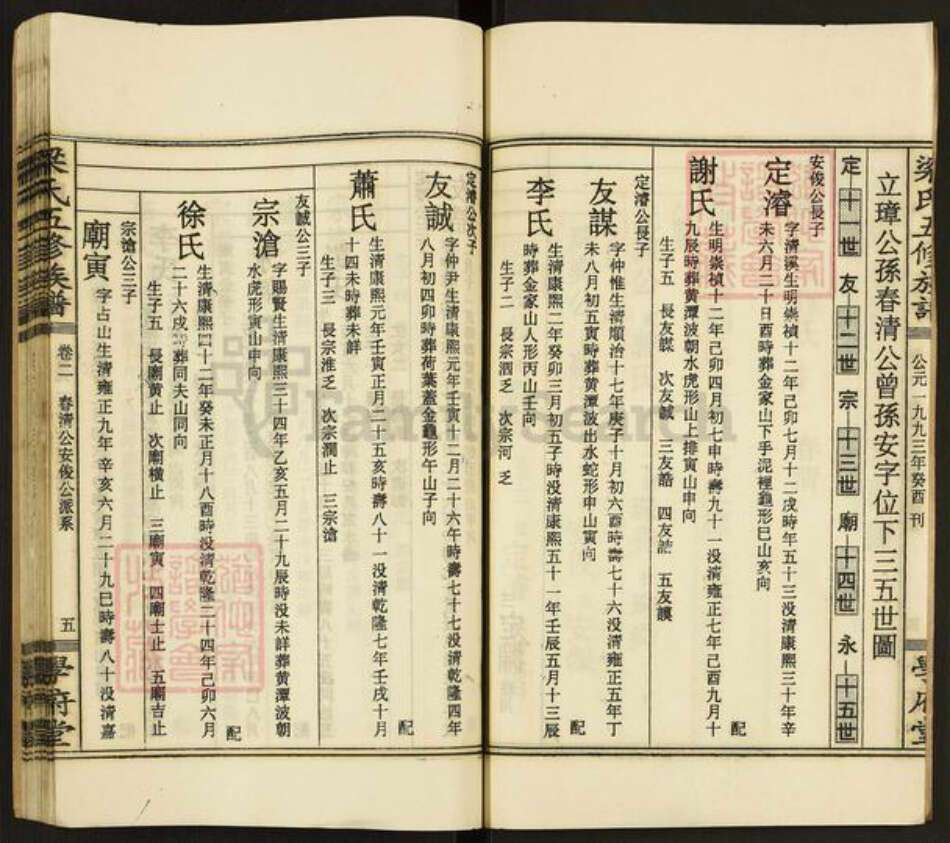 梁氏五修族譜
公元一九九三年癸酉刊
學府堂
立璋公孫春清公曾孫安字位下三五世圖
定十一世 友十二世 宗十三世 廟十四世 永十五世
安俊公長子
定濬
字清溪生明崇禎十二年己卯七月十二戌時年五十三没清康熙三十年辛
未六月二十日酉時葬金家山下手泥裡龜形巳山亥向
配
謝氏
生明崇禎十二年己卯四月初七申時壽九十一没清雍正七年己酉九月十
九辰時葬黄潭波朝水虎形山上排寅山申向
生子五 長友謀 次友誠 三友誥 四友 五友謨
定濬公長子
友謀
字仲惟生清順治十七年庚子十月初六酉時壽七十六没清雍正五年丁
未八月初五寅時葬黄潭波出水蛇形申山寅向
配
李氏
生清康熙二年癸卯三月初五子時没清康熙五十一年壬辰五月十三辰
時葬金家山人形丙山壬向
生子二 長宗泗乏 次宗河乏
定濬公次子
友誠
字仲尹生清康熙元年壬寅十二月二十六午時壽七十七没清乾隆四年
八月初四卯時葬荷葉蓋金龜形午山子向
配
蕭氏
生清康熙元年壬寅正月二十五亥時壽八十一没清乾隆七年壬戌十月
十四未時葬未詳
生子三 長宗淮乏 次宗潤止 三宗滄
友誠公三子
宗滄
字賜賢生清康熙三十四年乙亥五月二十九辰時没未詳葬黄潭波朝
水虎形寅山申向
配
徐氏
生清康熙四十二年癸未正月十八酉時没清乾隆二十四年己卯六月
二十六戌時葬同夫山同向
生子五 長廟黄止 次廟橫止 三廟寅 四廟士止 五廟吉止
宗滄公三子
廟寅
字占山生清雍正九年辛亥六月二十九巳時壽八十没清嘉
梁氏五修族譜
卷二 春清公安俊公派系
五
學府堂
FamilySearch